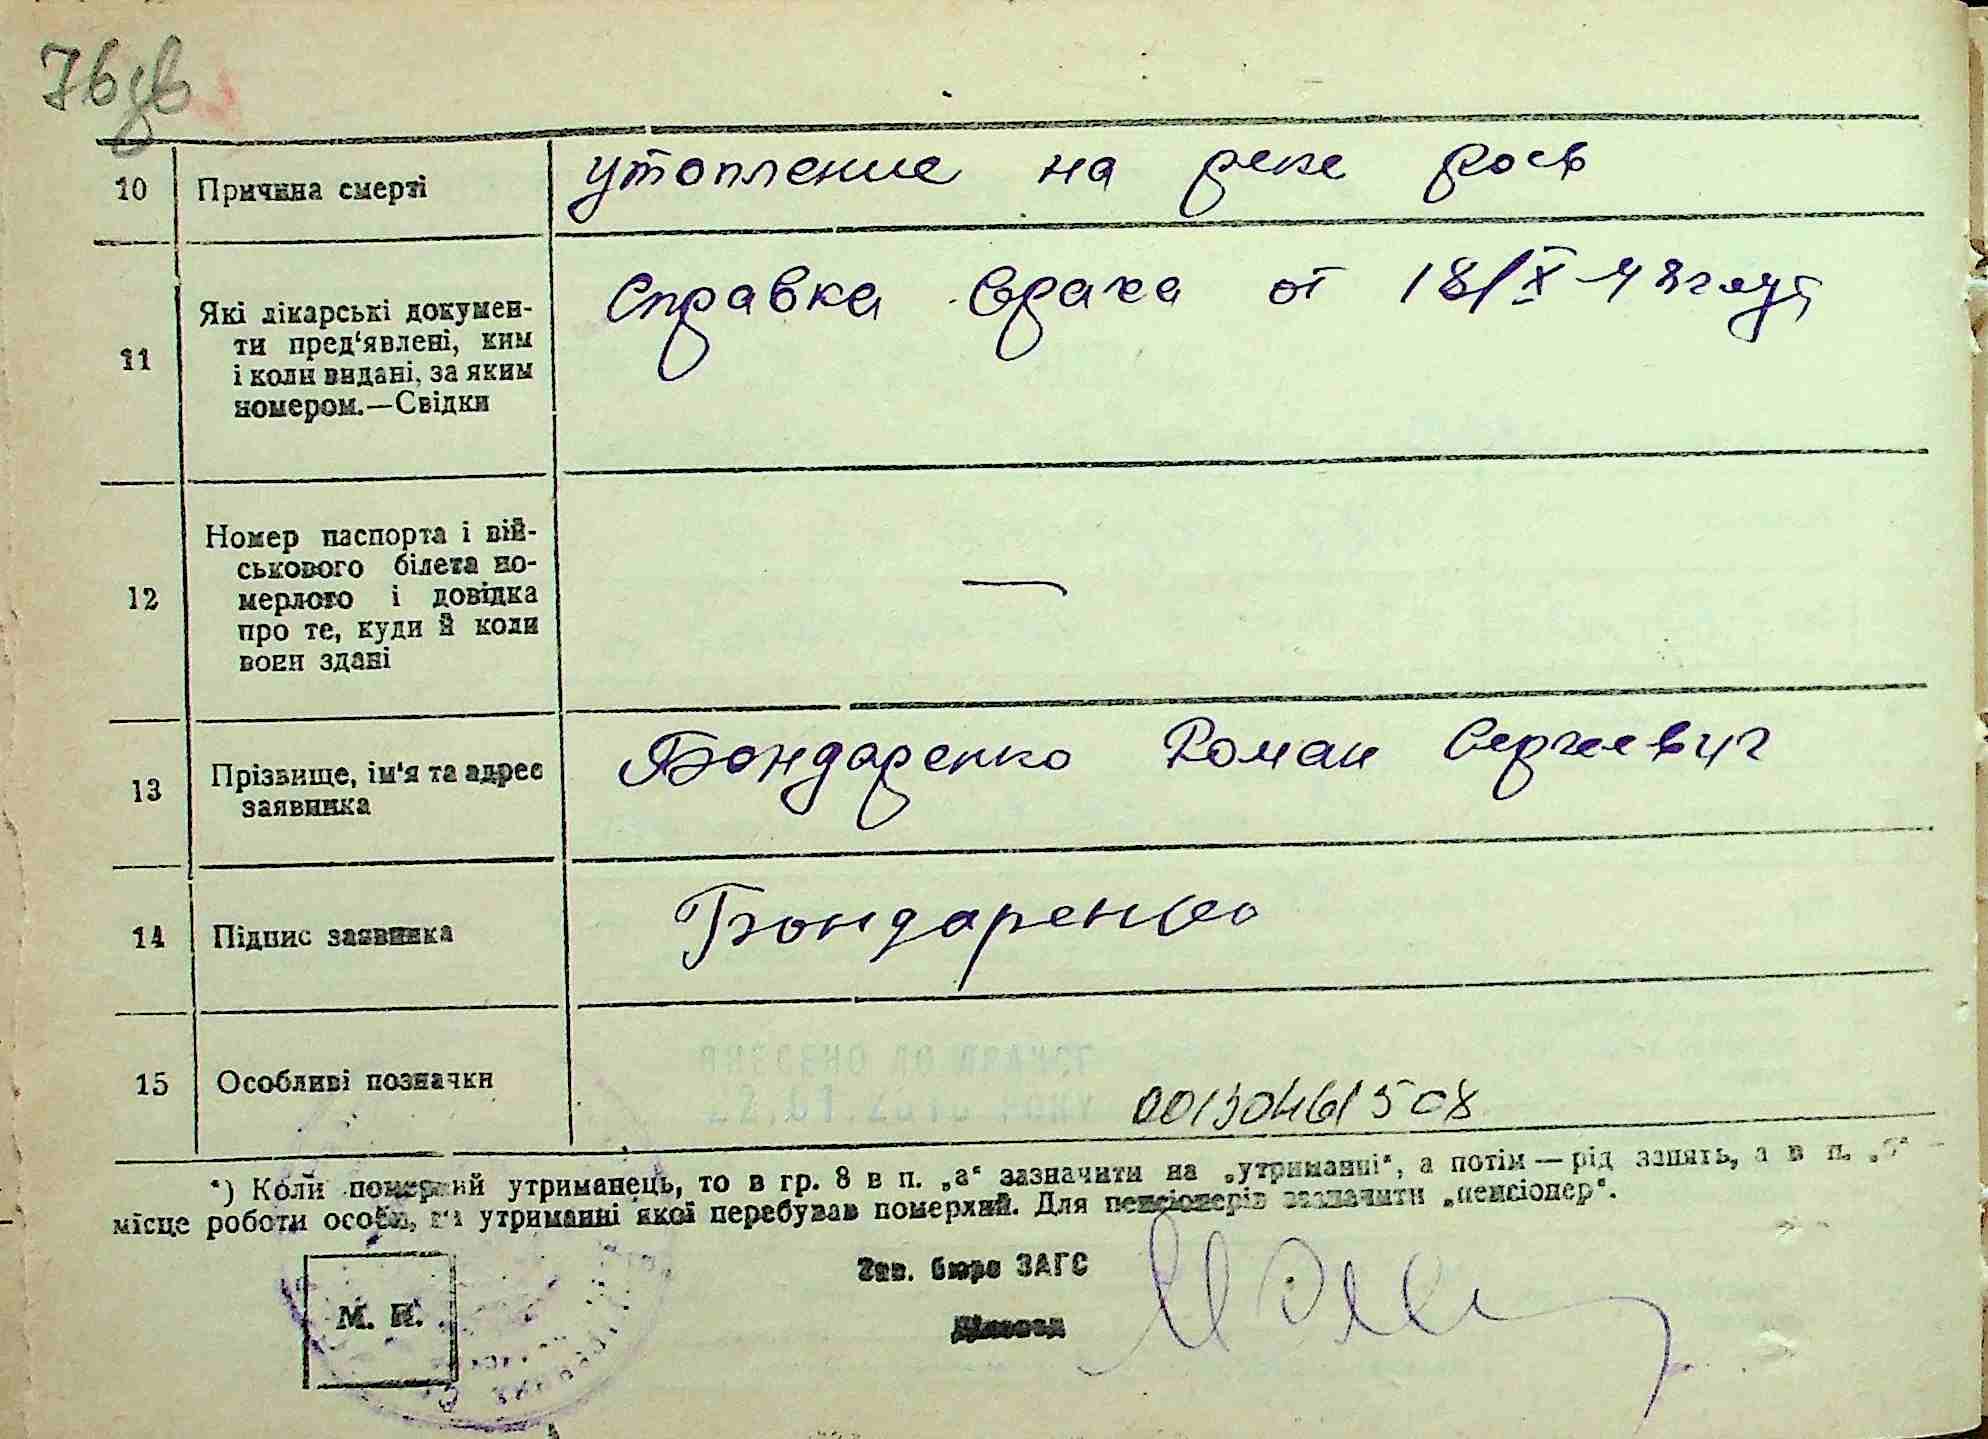 10 Причина смерті утопление на реке рось
11 Які лікарські докумен-
ти пред'явлені, ким
і коли видані, за яким
номером.—Свідки
Справка врача от 18/X-48 года
12 Номер паспорта і вій-
ськового білета по-
мерлого і довідка
про те, куди й коли
вони здані
—
13 Прізвище, ім'я та адрес
заявника
Бондаренко Роман Сергеевич
14 Підпис заявника Бондаренко
15 Особливі позначки
00130461508
*) Коли померлий утриманець, то в гр. 8 в п. „а" зазначити на „утриманні", а потім — рід занять, а в п.
місце роботи особи, на утриманні якої перебував померлий. Для пенсіонерів зазначити „пенсіонер".
Зав. бюро ЗАГС
М. П.
Діловод